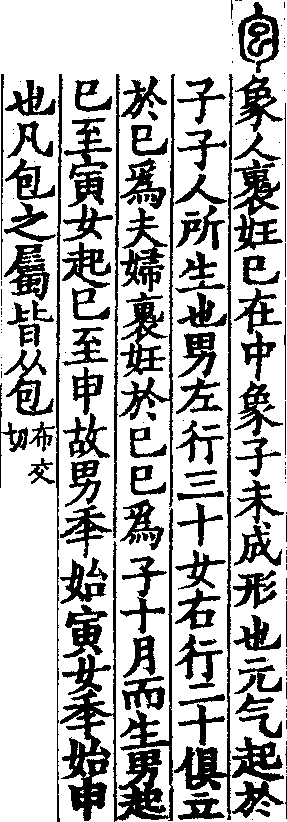 包象人裹妊巳在中象子未成形也元气起於
子子人所生也男左行三十女右行二十俱立
於巳爲夫婦裹妊於巳巳爲子十月而生男起
巳至寅女起巳至申故男秊始寅女秊始申
也凡包之屬皆从包布交切